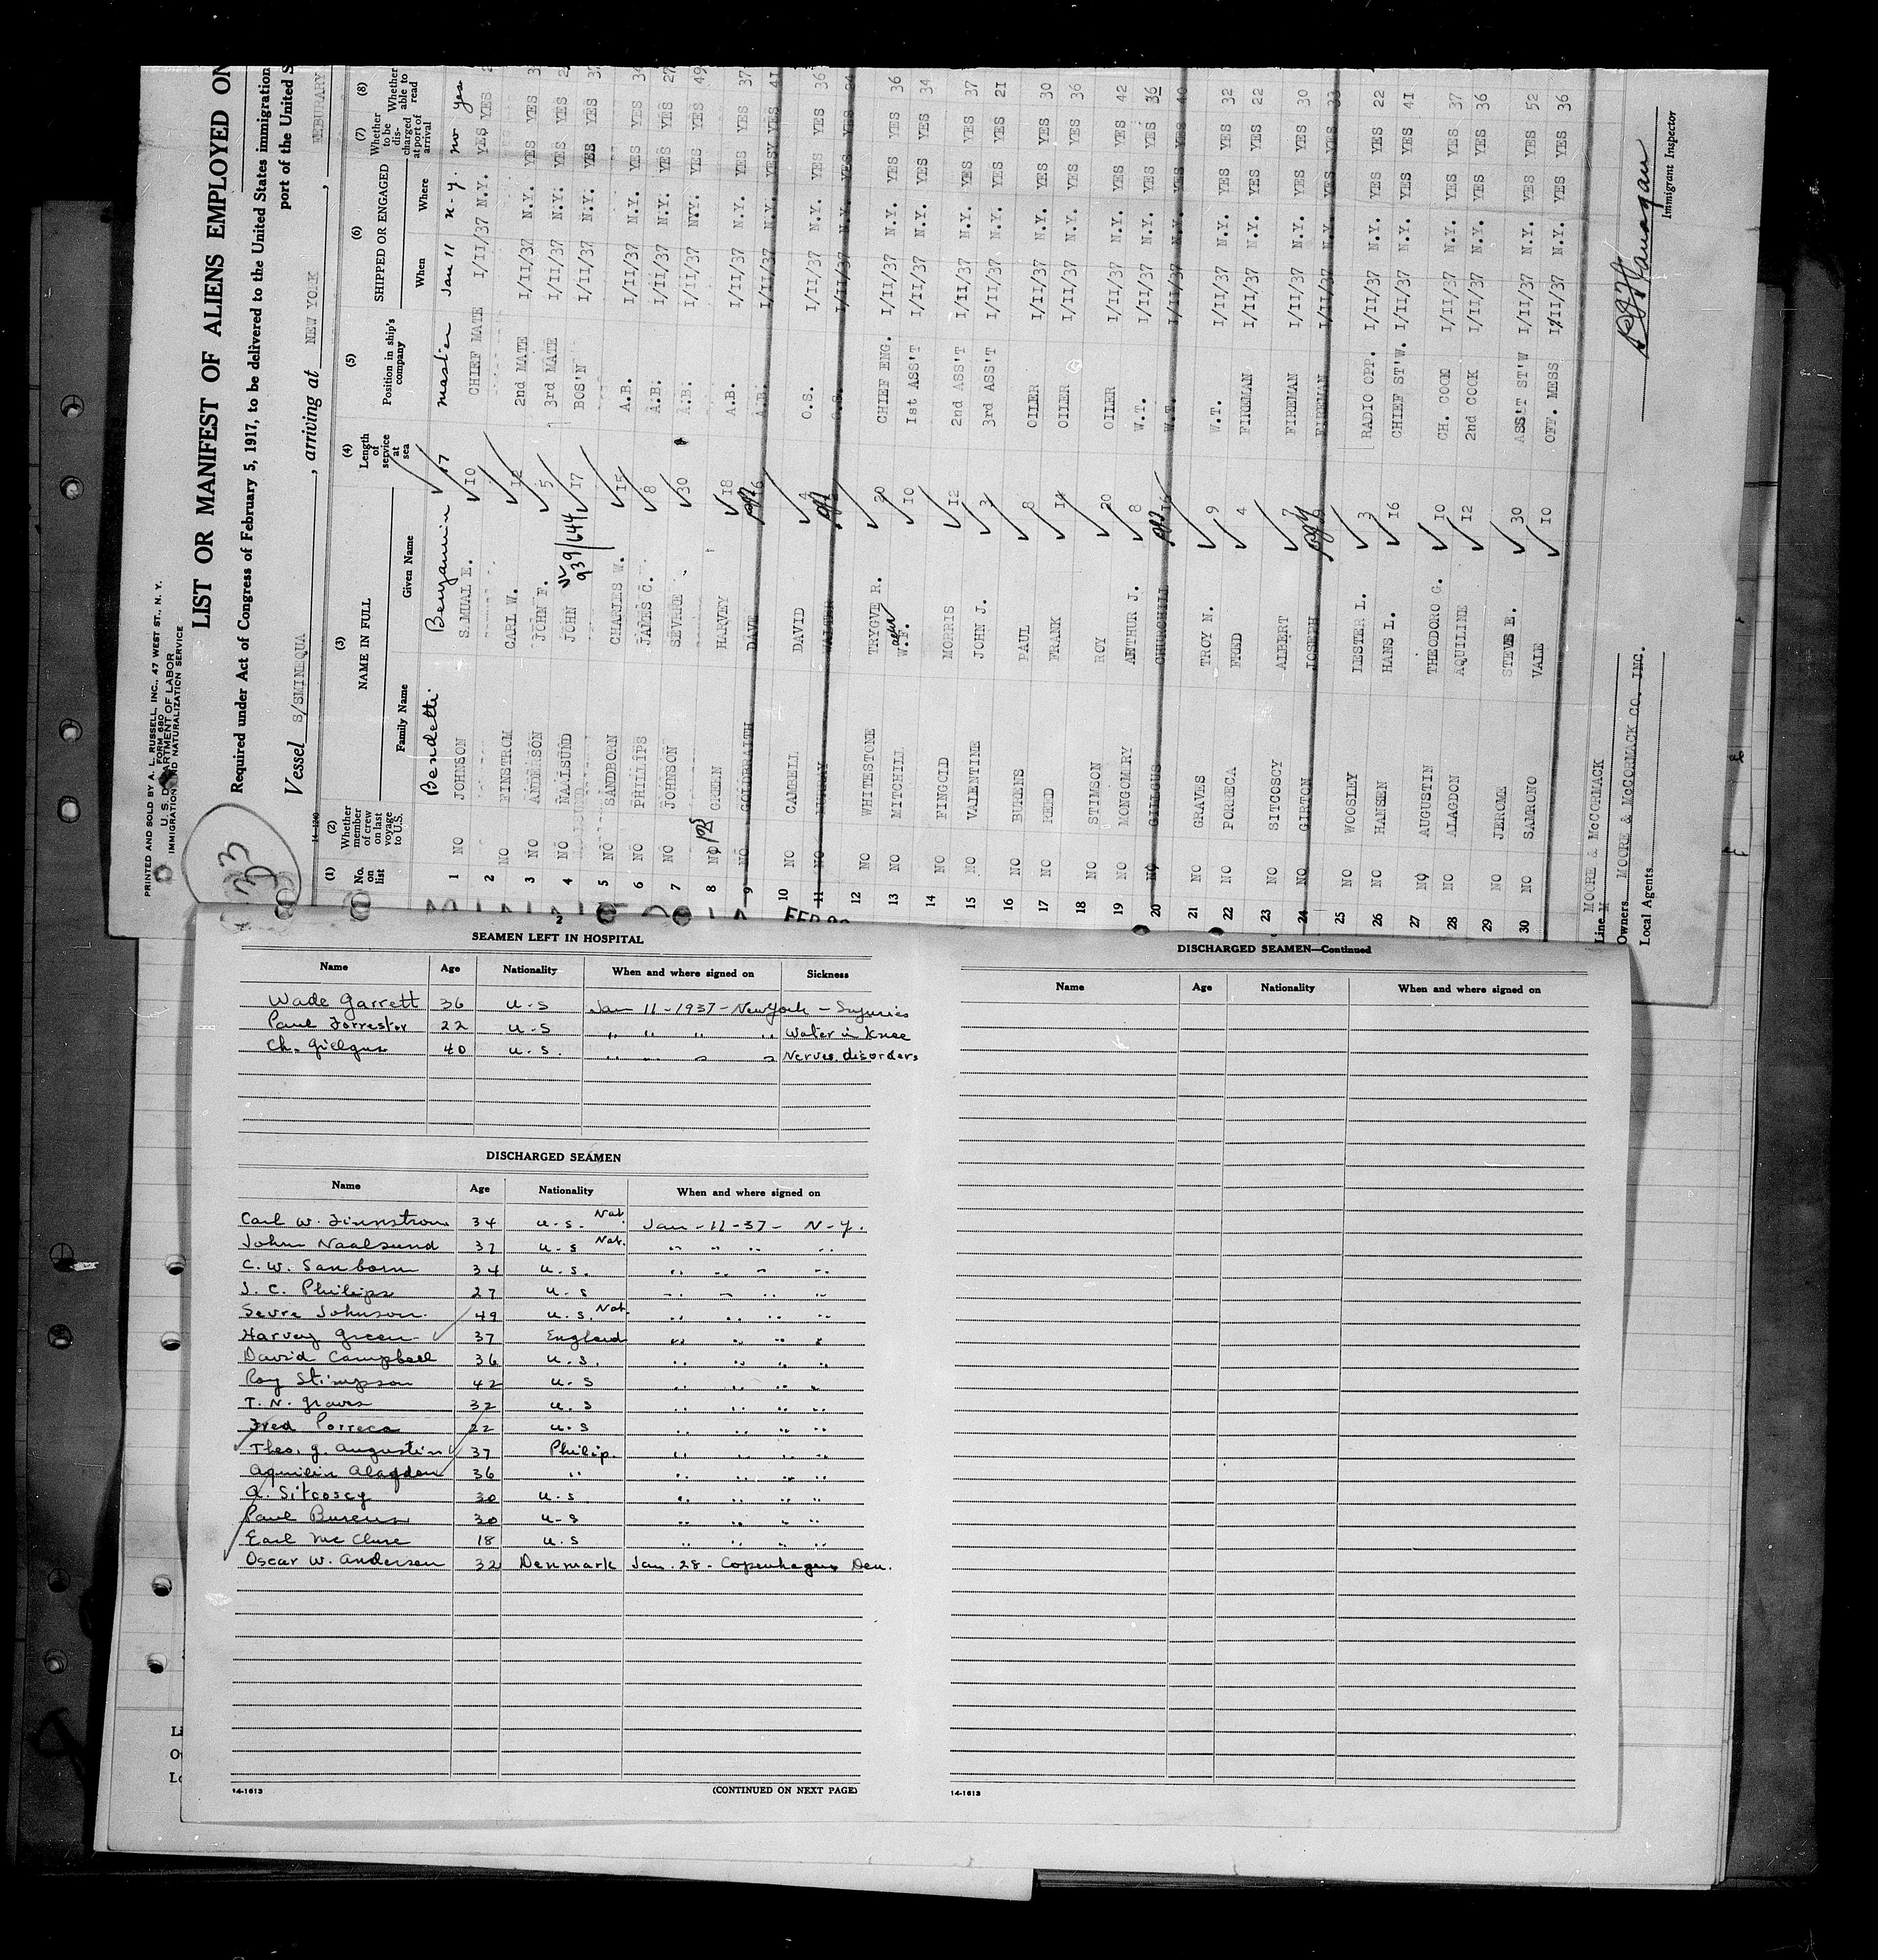 PRINTED AND SOLD BY A. L. RUSSELL, INC., 47 WEST ST., N. Y.
FORM 680
U. S. DEPARTMENT OF LABOR
IMMIGRATION AND NATURALIZATION SERVICE
14-1240
LIST OR MANIFEST OF ALIENS EMPLOYED ON
Required under Act of Congress of February 5, 1917, to be delivered to the United States immigration
port of the United S
Vessel S/SMINEQUA , arriving at NEW YORK ,
(1) No. on list
(2) Whether member of crew on last voyage to U.S.
(3) NAME IN FULL
Family Name Given Name
(4) Length of service at sea
(5) Position in ship's company
(6) SHIPPED OR ENGAGED
When Where
(7) Whether to be discharged at port of arrival
(8) Whether able to read
Benedetti Benyamin 17 master Jan 11 N-Y. no yes
1 NO JOHNSON S.MUAL E. 10 CHIEF MATE I/II/37 N.Y. YES YES
2 NO FINSTROM CARL W. 12 2nd MATE I/II/37 N.Y. YES YES
3 NO ANDERSON JOHN F. 5 3rd MATE I/II/37 N.Y. YES YES
4 NO NALSUND JOHN 939/644 17 BOS'N I/II/37 N.Y. YES YES
5 NO SANDBORN CHARLES W. 15 A.B. I/II/37 N.Y. YES YES
6 NO PHILLIPS JAMES C. 8 A.B. I/II/37 N.Y. YES YES 27
7 NO JOHNSON SEVRRE 30 A.B. I/II/37 N.Y. YES YES 49
8 NO GREEN HARVEY 18 A.B. I/II/37 N.Y. YES YES 37
9 NO GOLDBRALTH DAVE 6 A.B. I/II/37 N.Y. YESY YES 41
10 NO CAMBELL DAVID 4 O.S. I/II/37 N.Y. YES YES 36
11 NO MURRAY WALTER O.S. I/II/37 N.Y. YES YES 24
12 NO WHITESTONE TRYGVE R. 20 CHIEF ENG. I/II/37 N.Y. YES YES 36
13 NO MITCHILL W.F. 10 Ist ASS'T I/II/37 N.Y. YES YES 34
14 NO FINGOID MORRIS 12 2nd ASS'T I/II/37 N.Y. YES YES 37
15 NO VALENTINE JOHN J. 3 3rd ASS'T I/II/37 N.Y. YES YES 21
16 NO BURENS PAUL 8 OILER I/II/37 N.Y. YES YES 30
17 NO REED FRANK 14 OILER I/II/37 N.Y. YES YES 36
18 NO STIMSON ROY 20 OILER I/II/37 N.Y. YES YES 42
19 NO MONGOMERY ARTHUR J. 8 W.T. I/II/37 N.Y. YES YES 36
20 NO GILLGUS CHURCHILL 16 W.T. I/II/37 N.Y. YES YES 40
21 NO GRAVES TROY N. 9 W.T. I/II/37 N.Y. YES YES 32
22 NO PORRECA FRED 4 FIREMAN I/II/37 N.Y. YES YES 22
23 NO SITCOSCY ALBERT 7 FIREMAN I/II/37 N.Y. YES YES 30
24 NO GIRTON JOSEPH FIREMAN I/II/37 N.Y. YES YES 33
25 NO WOOSLEY LESTER L. 3 RADIO OPP. I/II/37 N.Y. YES YES 22
26 NO HANSEN HANS L. 16 CHIEF ST'W. I/II/37 N.Y. YES YES 41
27 NO AUGUSTIN THEODORO G. 10 CH. COOK I/II/37 N.Y. YES YES 37
28 NO ALAGDON AQUILINE 12 2nd COOK I/II/37 N.Y. YES YES 36
29 NO JEROME STEVE E. 30 ASS'T ST'W I/II/37 N.Y. YES YES 52
30 NO SAMRONO VALE 10 OFF. MESS I/II/37 N.Y. YES YES 36
Line MOORE & McCORMACK
Owners MOORE & McCORMACK CO. INC.
Local Agents
Immigrant Inspector
SEAMEN LEFT IN HOSPITAL
Name Age Nationality When and where signed on Sickness
Wade Garrett 36 U-S Jan 11-1937-New York - Injuries
Paul Forrester 22 U-S " " " " Water in Knee
Ch. Gillgus 40 U.S. " " " " Nerves disorders
DISCHARGED SEAMEN
Name Age Nationality When and where signed on
Carl W. Finnstrom 34 U.S. Nat. Jan-11-37- N-Y.
John Naalsund 37 U-S Nat. " " " "
C. W. Sanborn 34 U.S. " " " "
J. C. Philips 27 U-S " " " "
Sevre Johnson 49 U.S. Nat. " " " "
Harvey Green 37 England " " " "
David Campbell 36 U.S. " " " "
Roy Stimpson 42 U.S " " " "
T. N. Graves 32 U.S " " " "
Fred Porreca 22 U-S " " " "
Theo. G. Augustin 37 Philip. " " " "
Aquilin Alagden 36 " " " " "
A. Sitcoscy 30 U.S. " " " "
Paul Burens 30 U-S " " " "
Earl McClure 18 U.S " " " "
Oscar W. Andersen 32 Denmark Jan. 28 - Copenhagen Den.
14-1613
(CONTINUED ON NEXT PAGE)
DISCHARGED SEAMEN—Continued
Name Age Nationality When and where signed on
14-1613